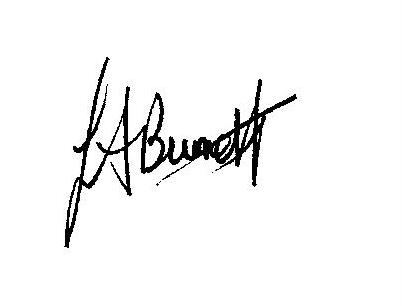 LA Burnett